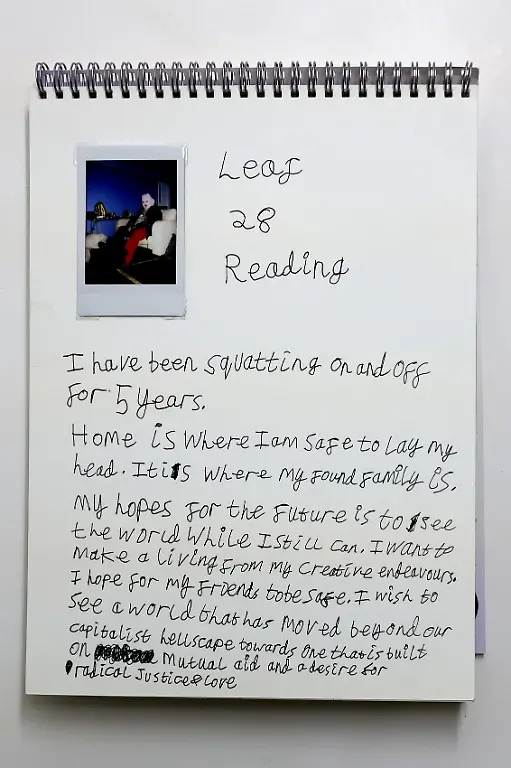 Leaf
28
Reading
I have been squatting on and off
for 5 years.
Home is where I am safe to lay my
head. It is where my found family is.
My hopes for the future is to see
the world while I still can. I want to
make a living from my creative endeavours.
I hope for my friends to be safe. I wish to
see a world that has moved beyond our
capitalist hellscape towards one that is built
on mutual aid and a desire for
radical justice & love